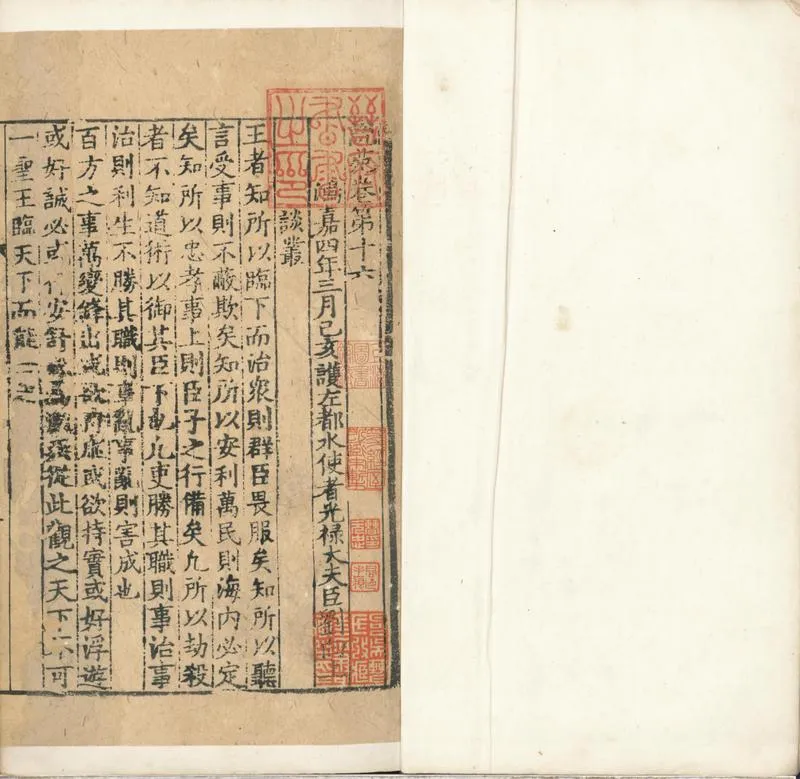 說苑卷第十六
鴻嘉四年三月己亥護左都水使者光祿大夫臣劉
談叢
王者知所以臨下而治衆則群臣畏服矣知所以聽
言受事則不蔽欺矣知所以安利萬民則海內必定
矣知所以忠孝事上則臣子之行備矣凢所以劫殺
者不知道術以御其臣下也凢吏勝其職則事治事
治則利生不勝其職則事亂事亂則害成也
百方之事萬變鋒出或欲持虛或欲持實或好浮遊
或好誠必或行安舒或爲飄疾從此觀之天下不可
一聖王臨天下而能一之